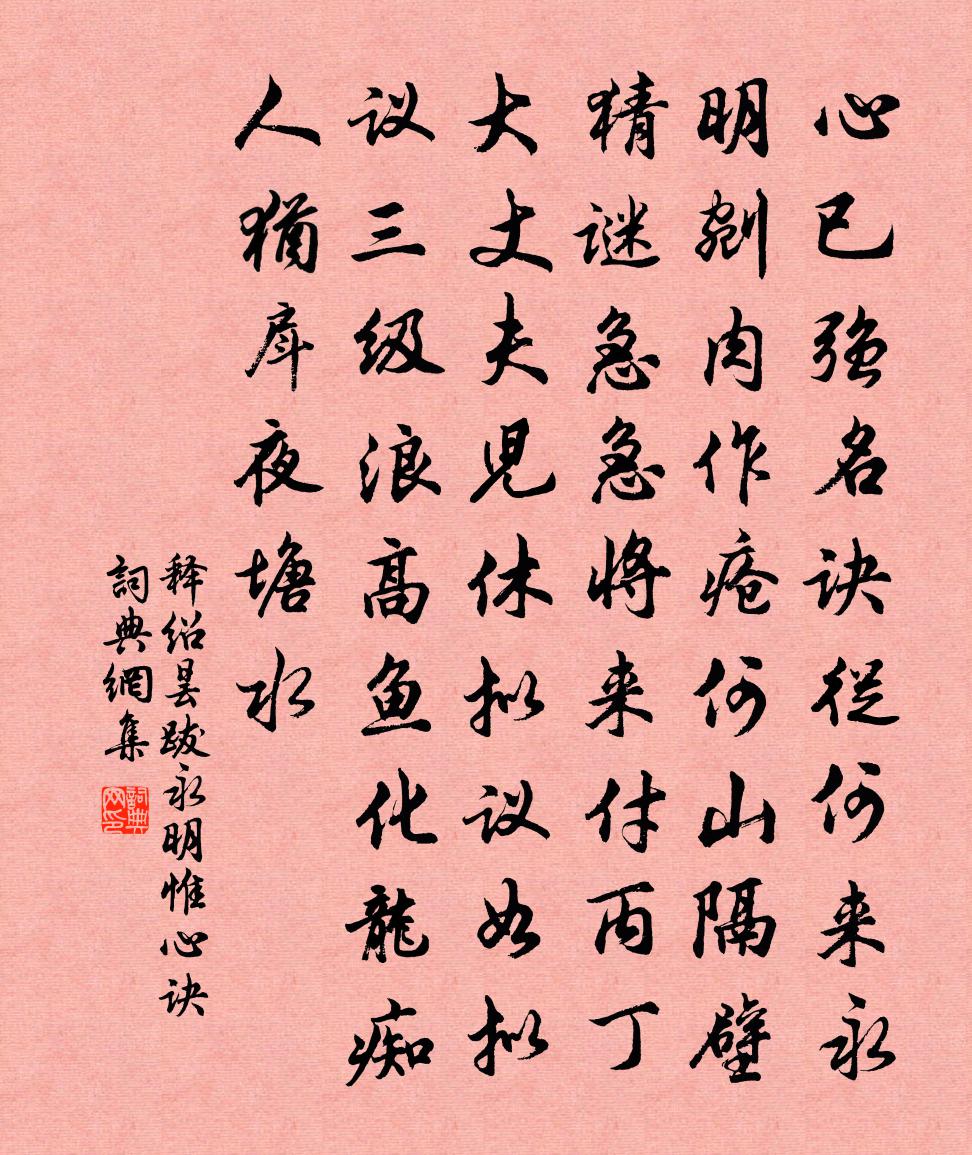 心已强名诀從何来永
明剜肉作疮何山隔壁
猜谜急急将来付丙丁
大丈夫児休拟议如拟
议三级浪高鱼化龍痴
人猶戽夜塘水
释绍昙跋永明惟心诀
詞典網集
詞典网印